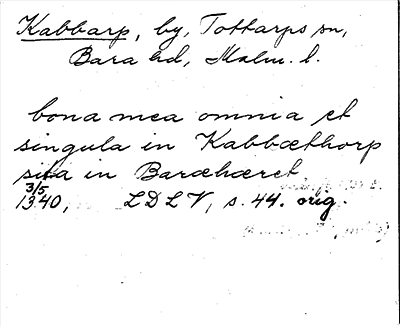 Kabbarp, by, Tottarps sn,
Bara hd, Malm. l.
bona mea omnia et
singula in Kabbæthorp
sita in Baræhæret
3/5
1340, LDLV, s. 44. orig.